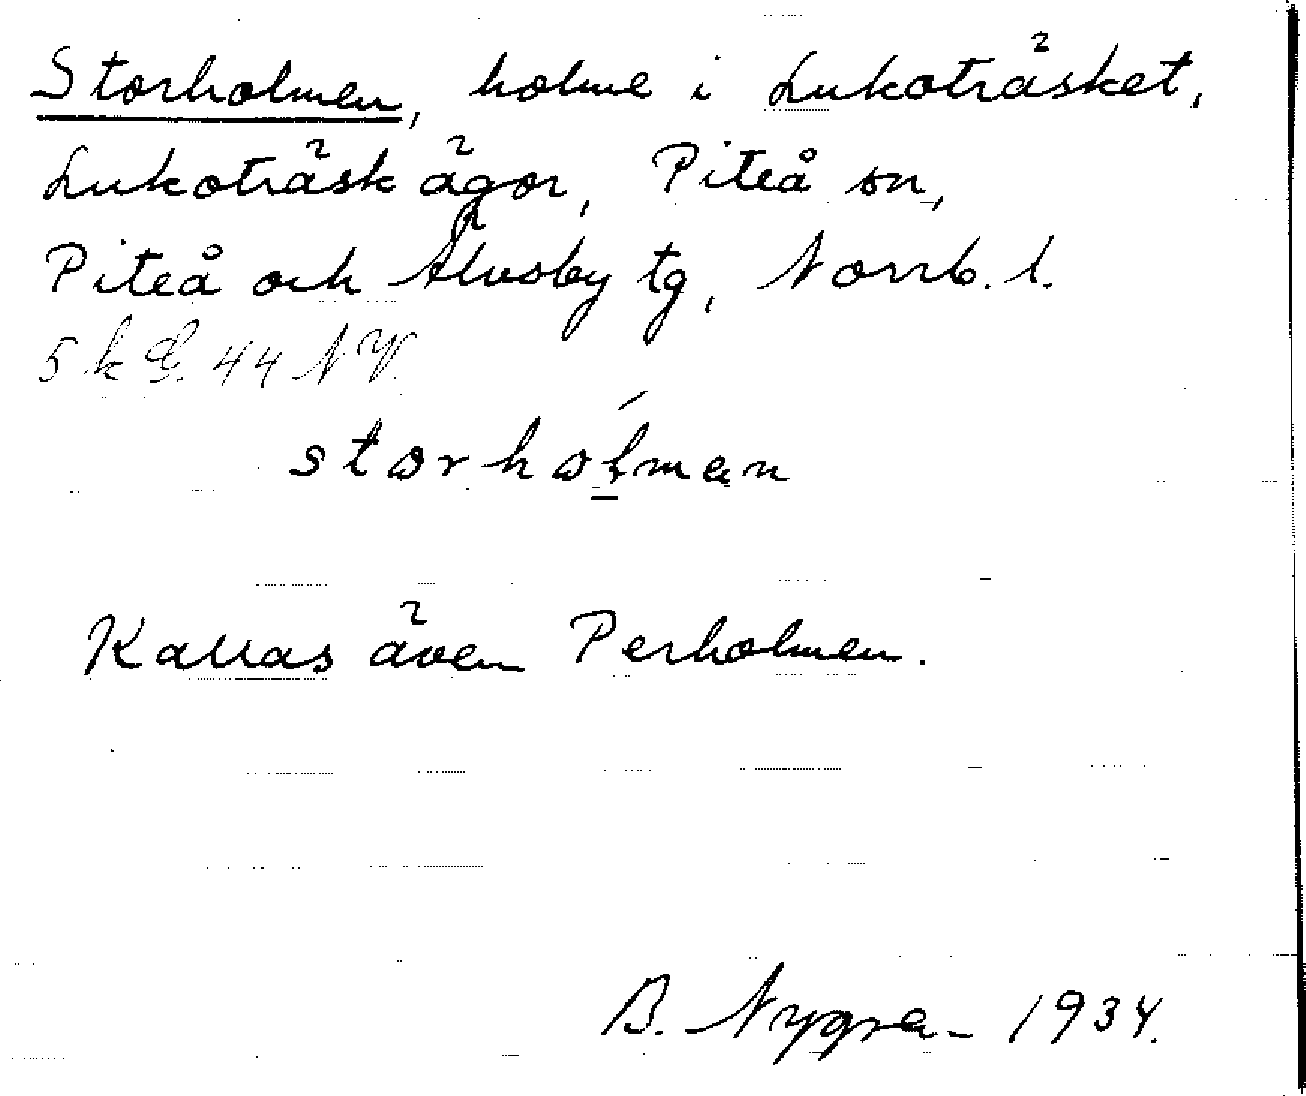 Storholmen, holme i Lukoträsket,
Lukoträsk ägor, Piteå sn,
Piteå och Älvsby tg, Norrb. l.
5 k 44 NV.
storholmən
Kallas även Perholmen.
B. Nygren 1934.